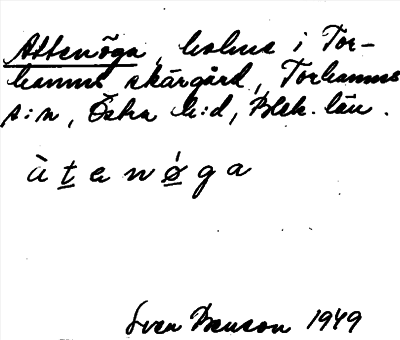 Attenöga, holme i Tor-
hamns skärgård, Torhamns
s:n, Östra h:d, Blek. län.
àt̲enǿ̲ga
Sven Benson 1949